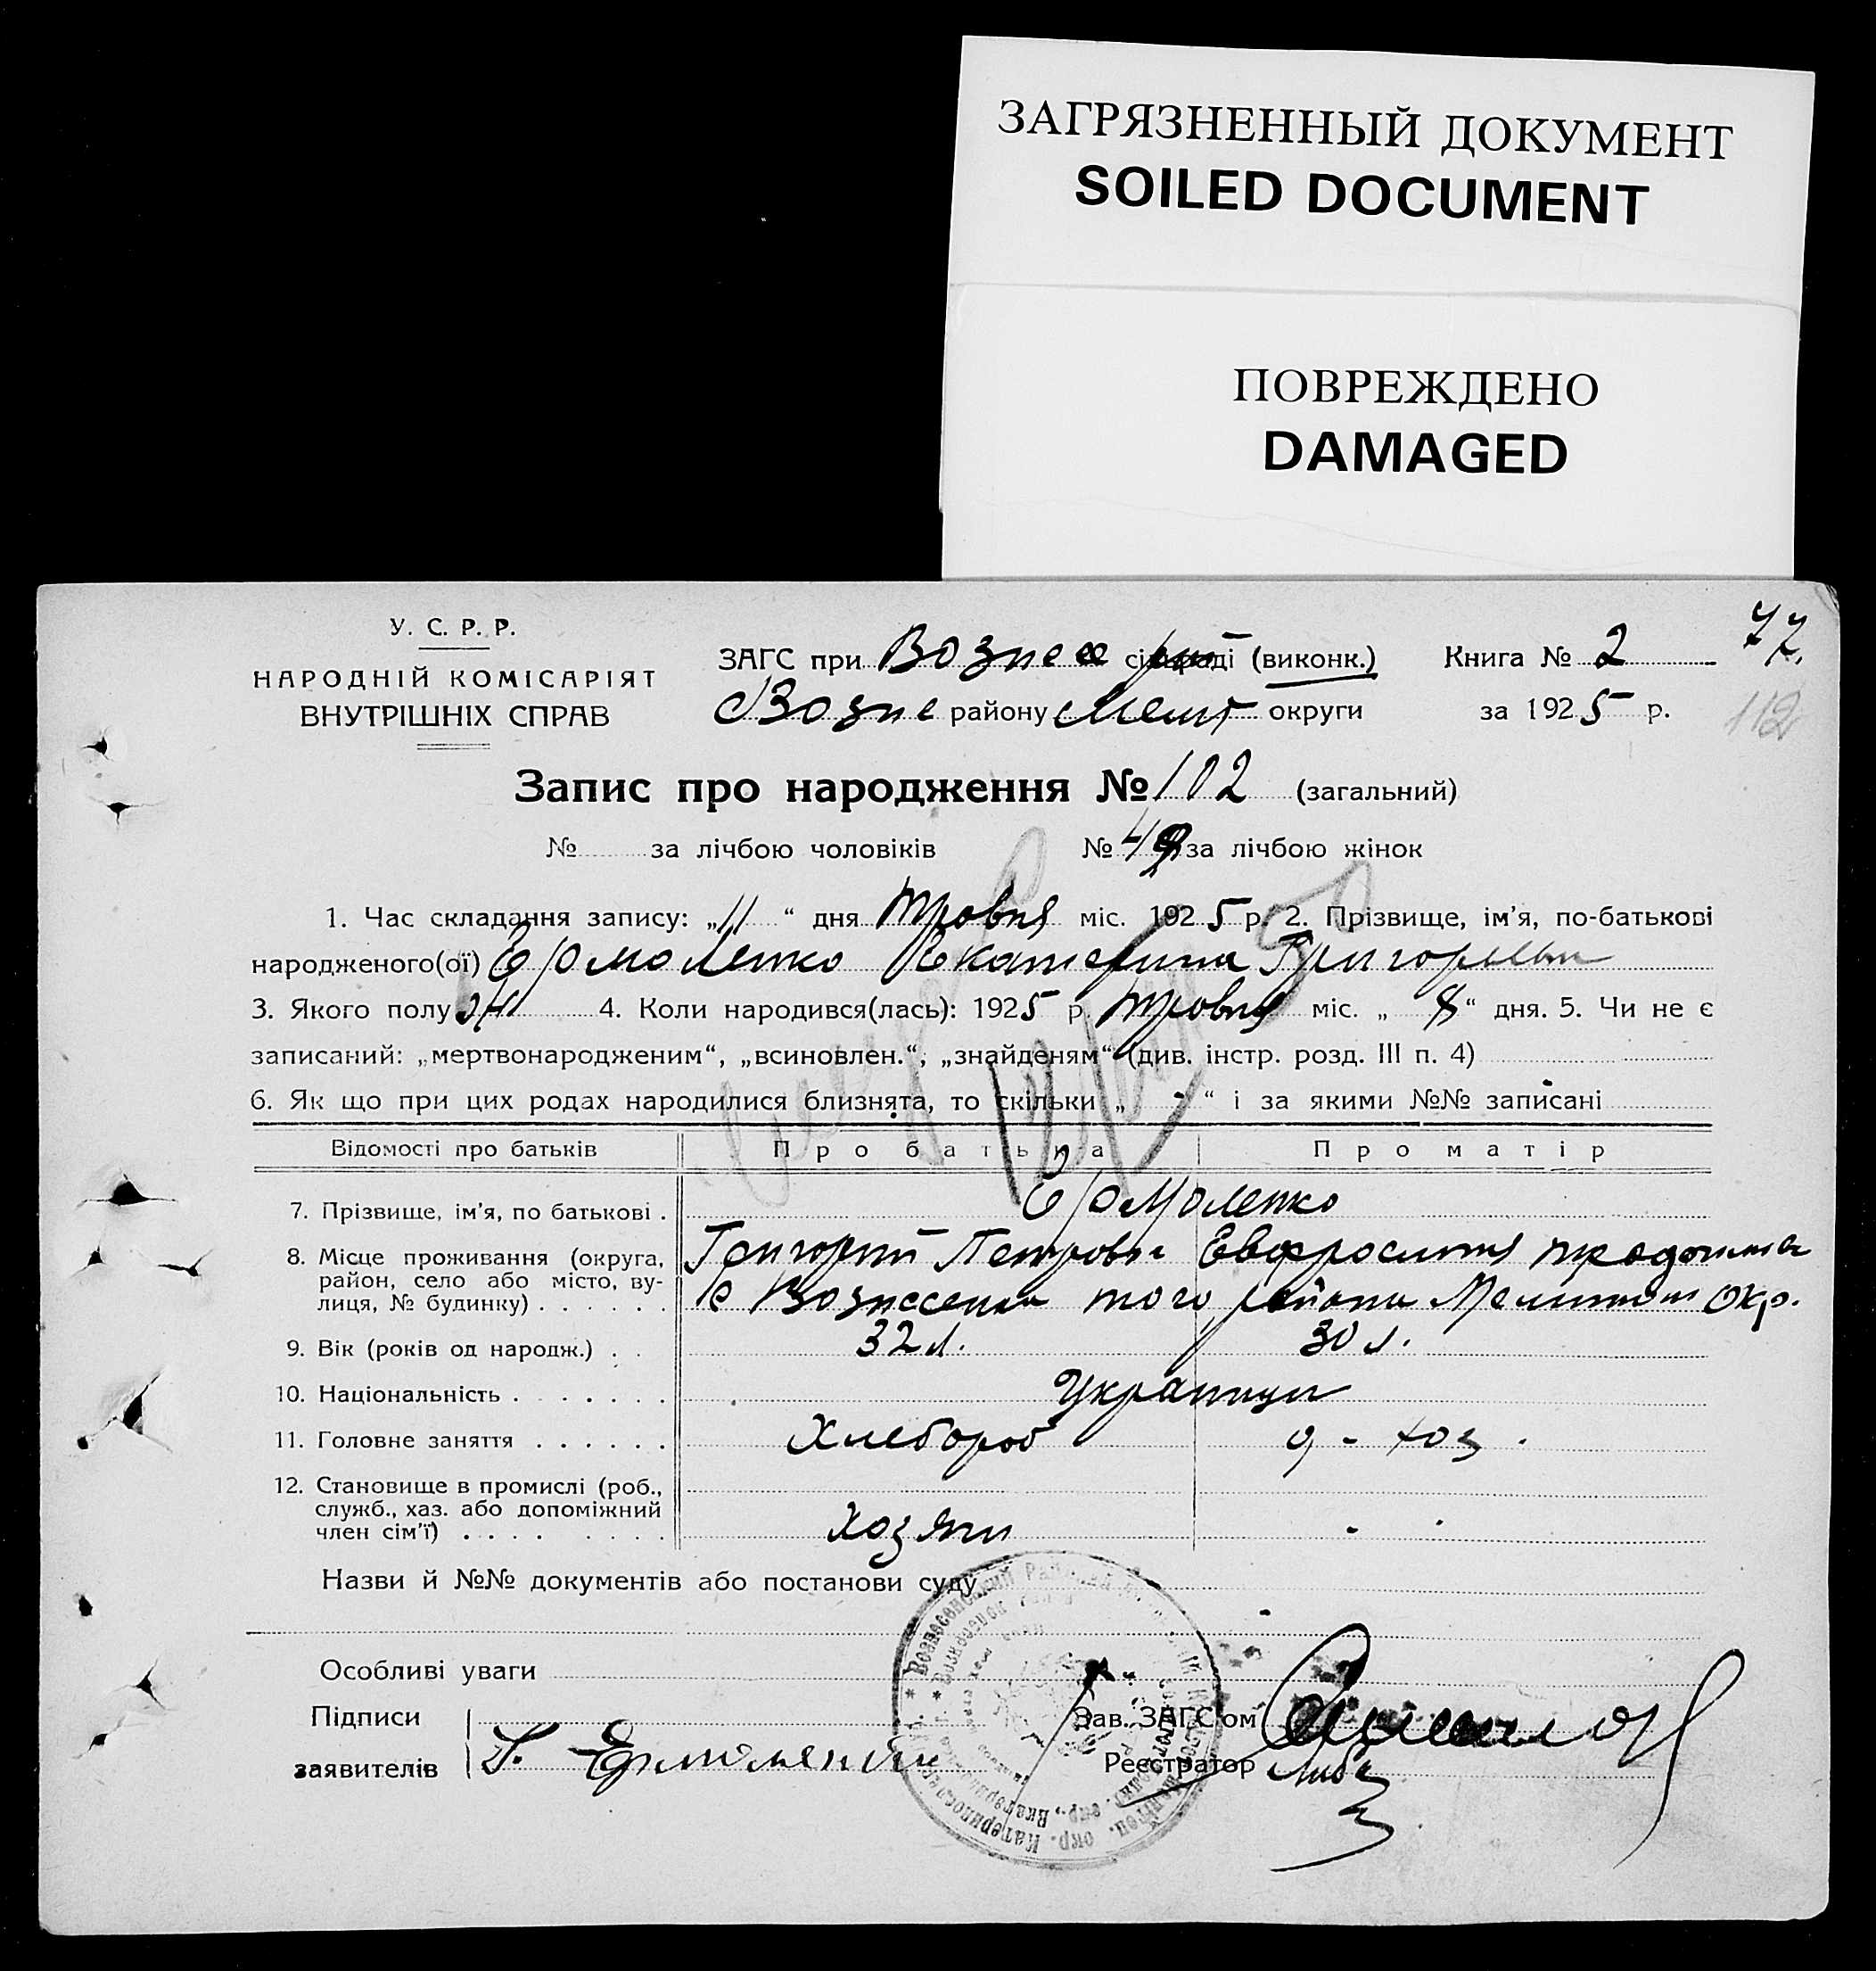 ЗАГРЯЗНЕННЫЙ ДОКУМЕНТ
SOILED DOCUMENT
ПОВРЕЖДЕНО
DAMAGED
77.
У. С. Р. Р.
НАРОДНІЙ КОМІСАРІЯТ
ВНУТРІШНІХ СПРАВ
ЗАГС при Вознес (виконк.) Книга № 2
Возне району Мелит округи за 1925 р.
112
Запис про народження № 102 (загальний)
№ за лічбою чоловіків № 49 за лічбою жінок
1. Час складання запису: „11“ дня травня міс. 1925 р. 2. Прізвище, ім’я, по-батькові
народженого(ої) Ермоленко Екатерина Григорьевн
3. Якого полу ж 4. Коли народився(лась): 1925 р. травня міс. „8“ дня. 5. Чи не є
записаний: „мертвонародженим“, „всиновлен.“, „знайденям“ (див. інстр. розд. III п. 4)
6. Як що при цих родах народилися близнята, то скільки „ - “ і за якими №№ записані
Відомості про батьків Про батька Про матір
7. Прізвище, ім’я, по батькові . Ермоленко
8. Місце проживання (округа, Григорий Петрович Евфросиния
район, село або місто, ву-
лиця, № будинку) . . . . . . с Вознесенка того района Мелитоп Окр.
9. Вік (років од народж.) . . 32 л. 30 л.
10. Національність . . . . . . . Украинцы
11. Головне заняття . . . . . . Хлебороб д - хоз.
12. Становище в промислі (роб.,
служб., хаз. або допоміжний
член сім’ї) . . . . . . . . Хозяин
Назви й №№ документів або постанови суду
Особливі уваги
Підписи Зав. ЗАГС’ом
заявителів Ермоленко Реєстратор